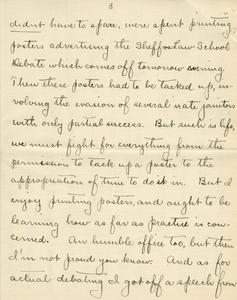 3
didn't have to spare, were spent printing
posters advertising the Sheff vs Law School
Debate which comes off tomorrow evening.
Then these posters had to be tacked up, in-
volving the evasion of several irate janitors
with only partial success. But such is life,
we must fight for everything from the
permission to tack up a poster to the
appropriation of time to do it in. But I
enjoy printing posters, and aught to be
learning how as far as practice is con-
cerned. An humble office too, but then
I'm not proud you know. And as for
actual debating I got off a speech from